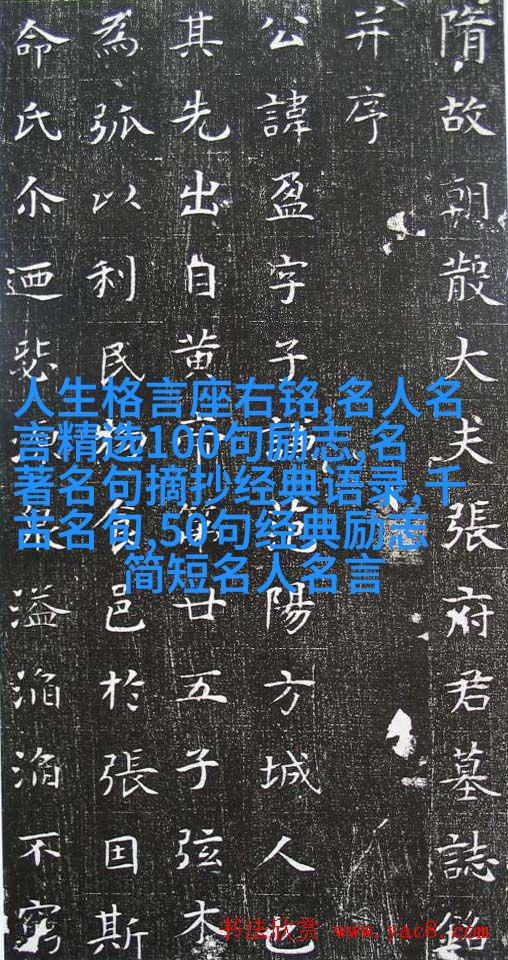 隋故朝散大夫張府君墓誌銘
并序
公諱盈字子范陽方城人也
其先出自黄帝第廿五子弦木
為弧以利民食邑於張因斯
命氏尒迺泉溢滔滔不窮
人生格言座右铭,名人名
言精选100句励志,名
著名句摘抄经典语录,千
古名句,50句经典励志
简短名人名言
书法欣赏 www.yac8.com